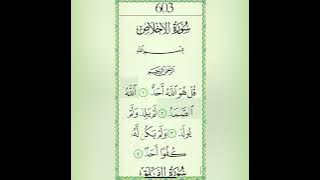 603
سُورَةُ الإِخْلَاصِ
بِسْمِ اللَّهِ
الرَّحْمَٰنِ الرَّحِيمِ
قُلْ هُوَ اللَّهُ أَحَدٌ ١ اللَّهُ
الصَّمَدُ ٢ لَمْ يَلِدْ وَلَمْ
يُولَدْ ٣ وَلَمْ يَكُن لَّهُ
كُفُوًا أَحَدٌ ٤
سُورَةُ الفَلَقِ